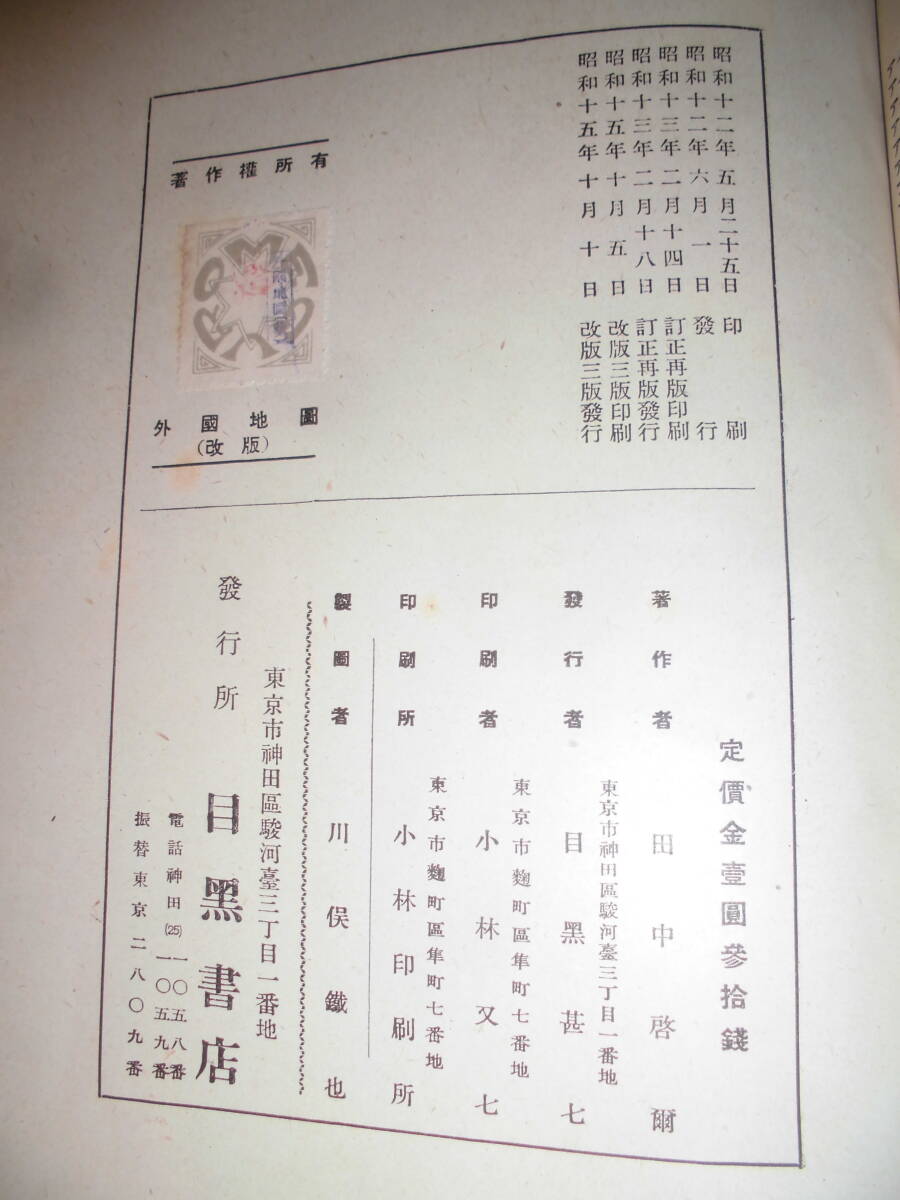 昭和十二年五月二十五日印刷
昭和十二年六月一日發行
昭和十三年二月十四日訂正再版印刷
昭和十三年二月十八日訂正再版發行
昭和十五年十月五日改版三版印刷
昭和十五年十月十日改版三版發行
著作權所有
外國地圖
(改版)
定價金壹圓參拾錢
著作者 田中啓爾
東京市神田區駿河臺三丁目一番地
發行者 目黑甚七
東京市麴町區隼町七番地
印刷者 小林又七
東京市麴町區隼町七番地
印刷所 小林印刷所
製圖者 川俣鐵也
東京市神田區駿河臺三丁目一番地
發行所 目黑書店
電話神田(25)一〇五八番
一〇五九番
振替東京二八〇九番